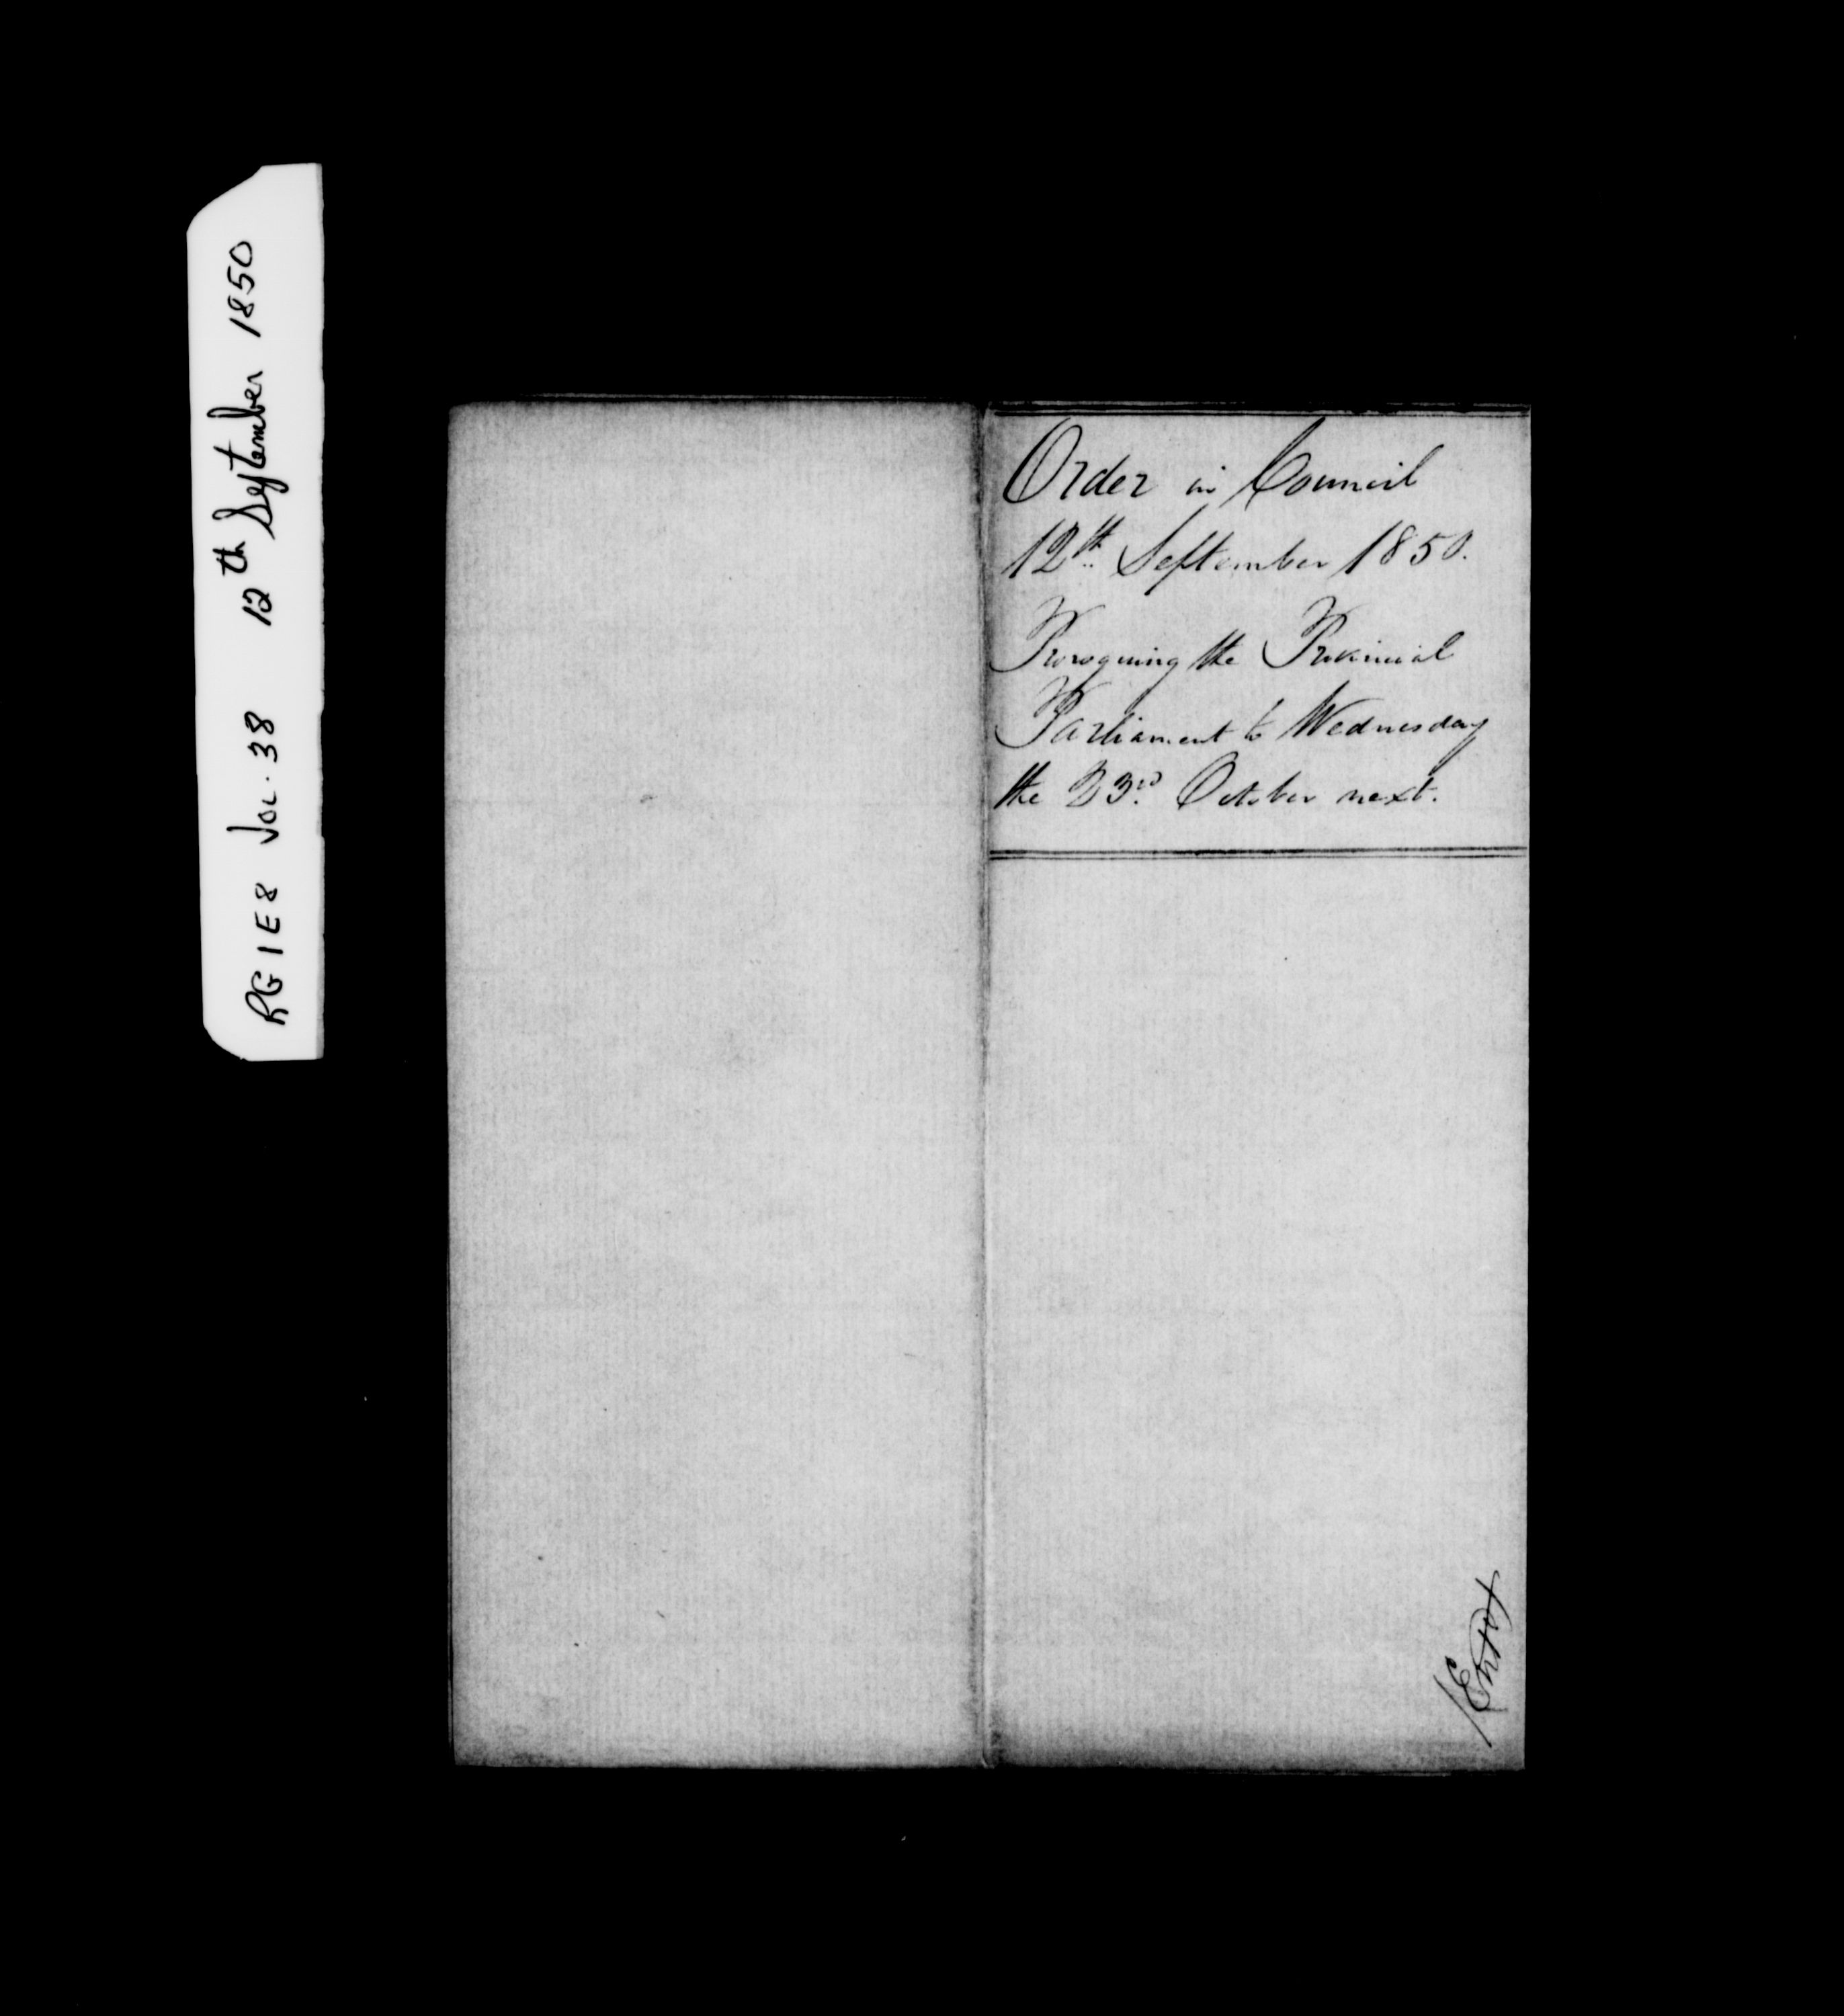 RG 1 E8 Vol. 38 12th September 1850
Order in Council
12th September 1850.
Proroguing the Provincial
Parliament to Wednesday
the 23rd October next.